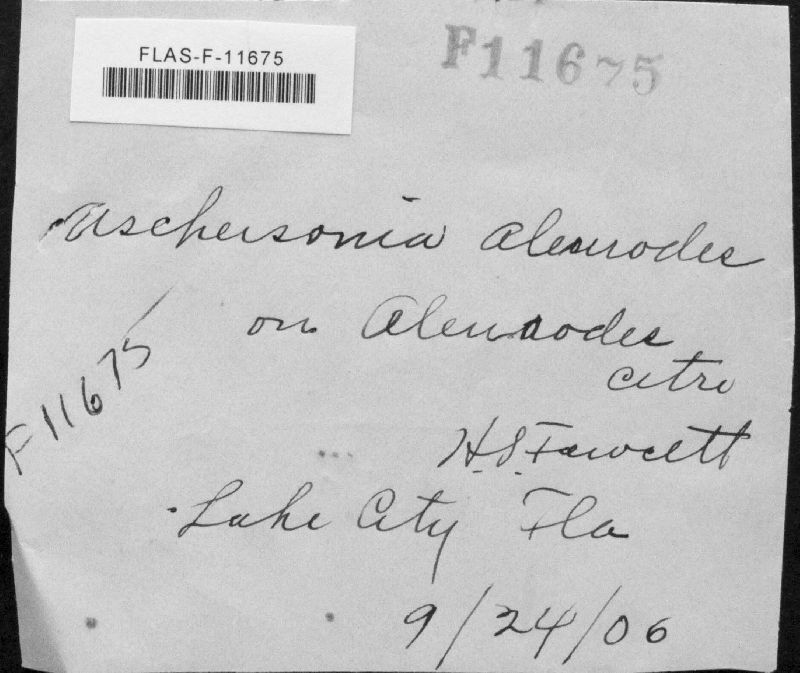 FLAS-F-11675
F11675
Aschersonia aleurodes
on Aleurodes
citri
F11675
H.S. Fawcett
Lake City Fla
9/24/06